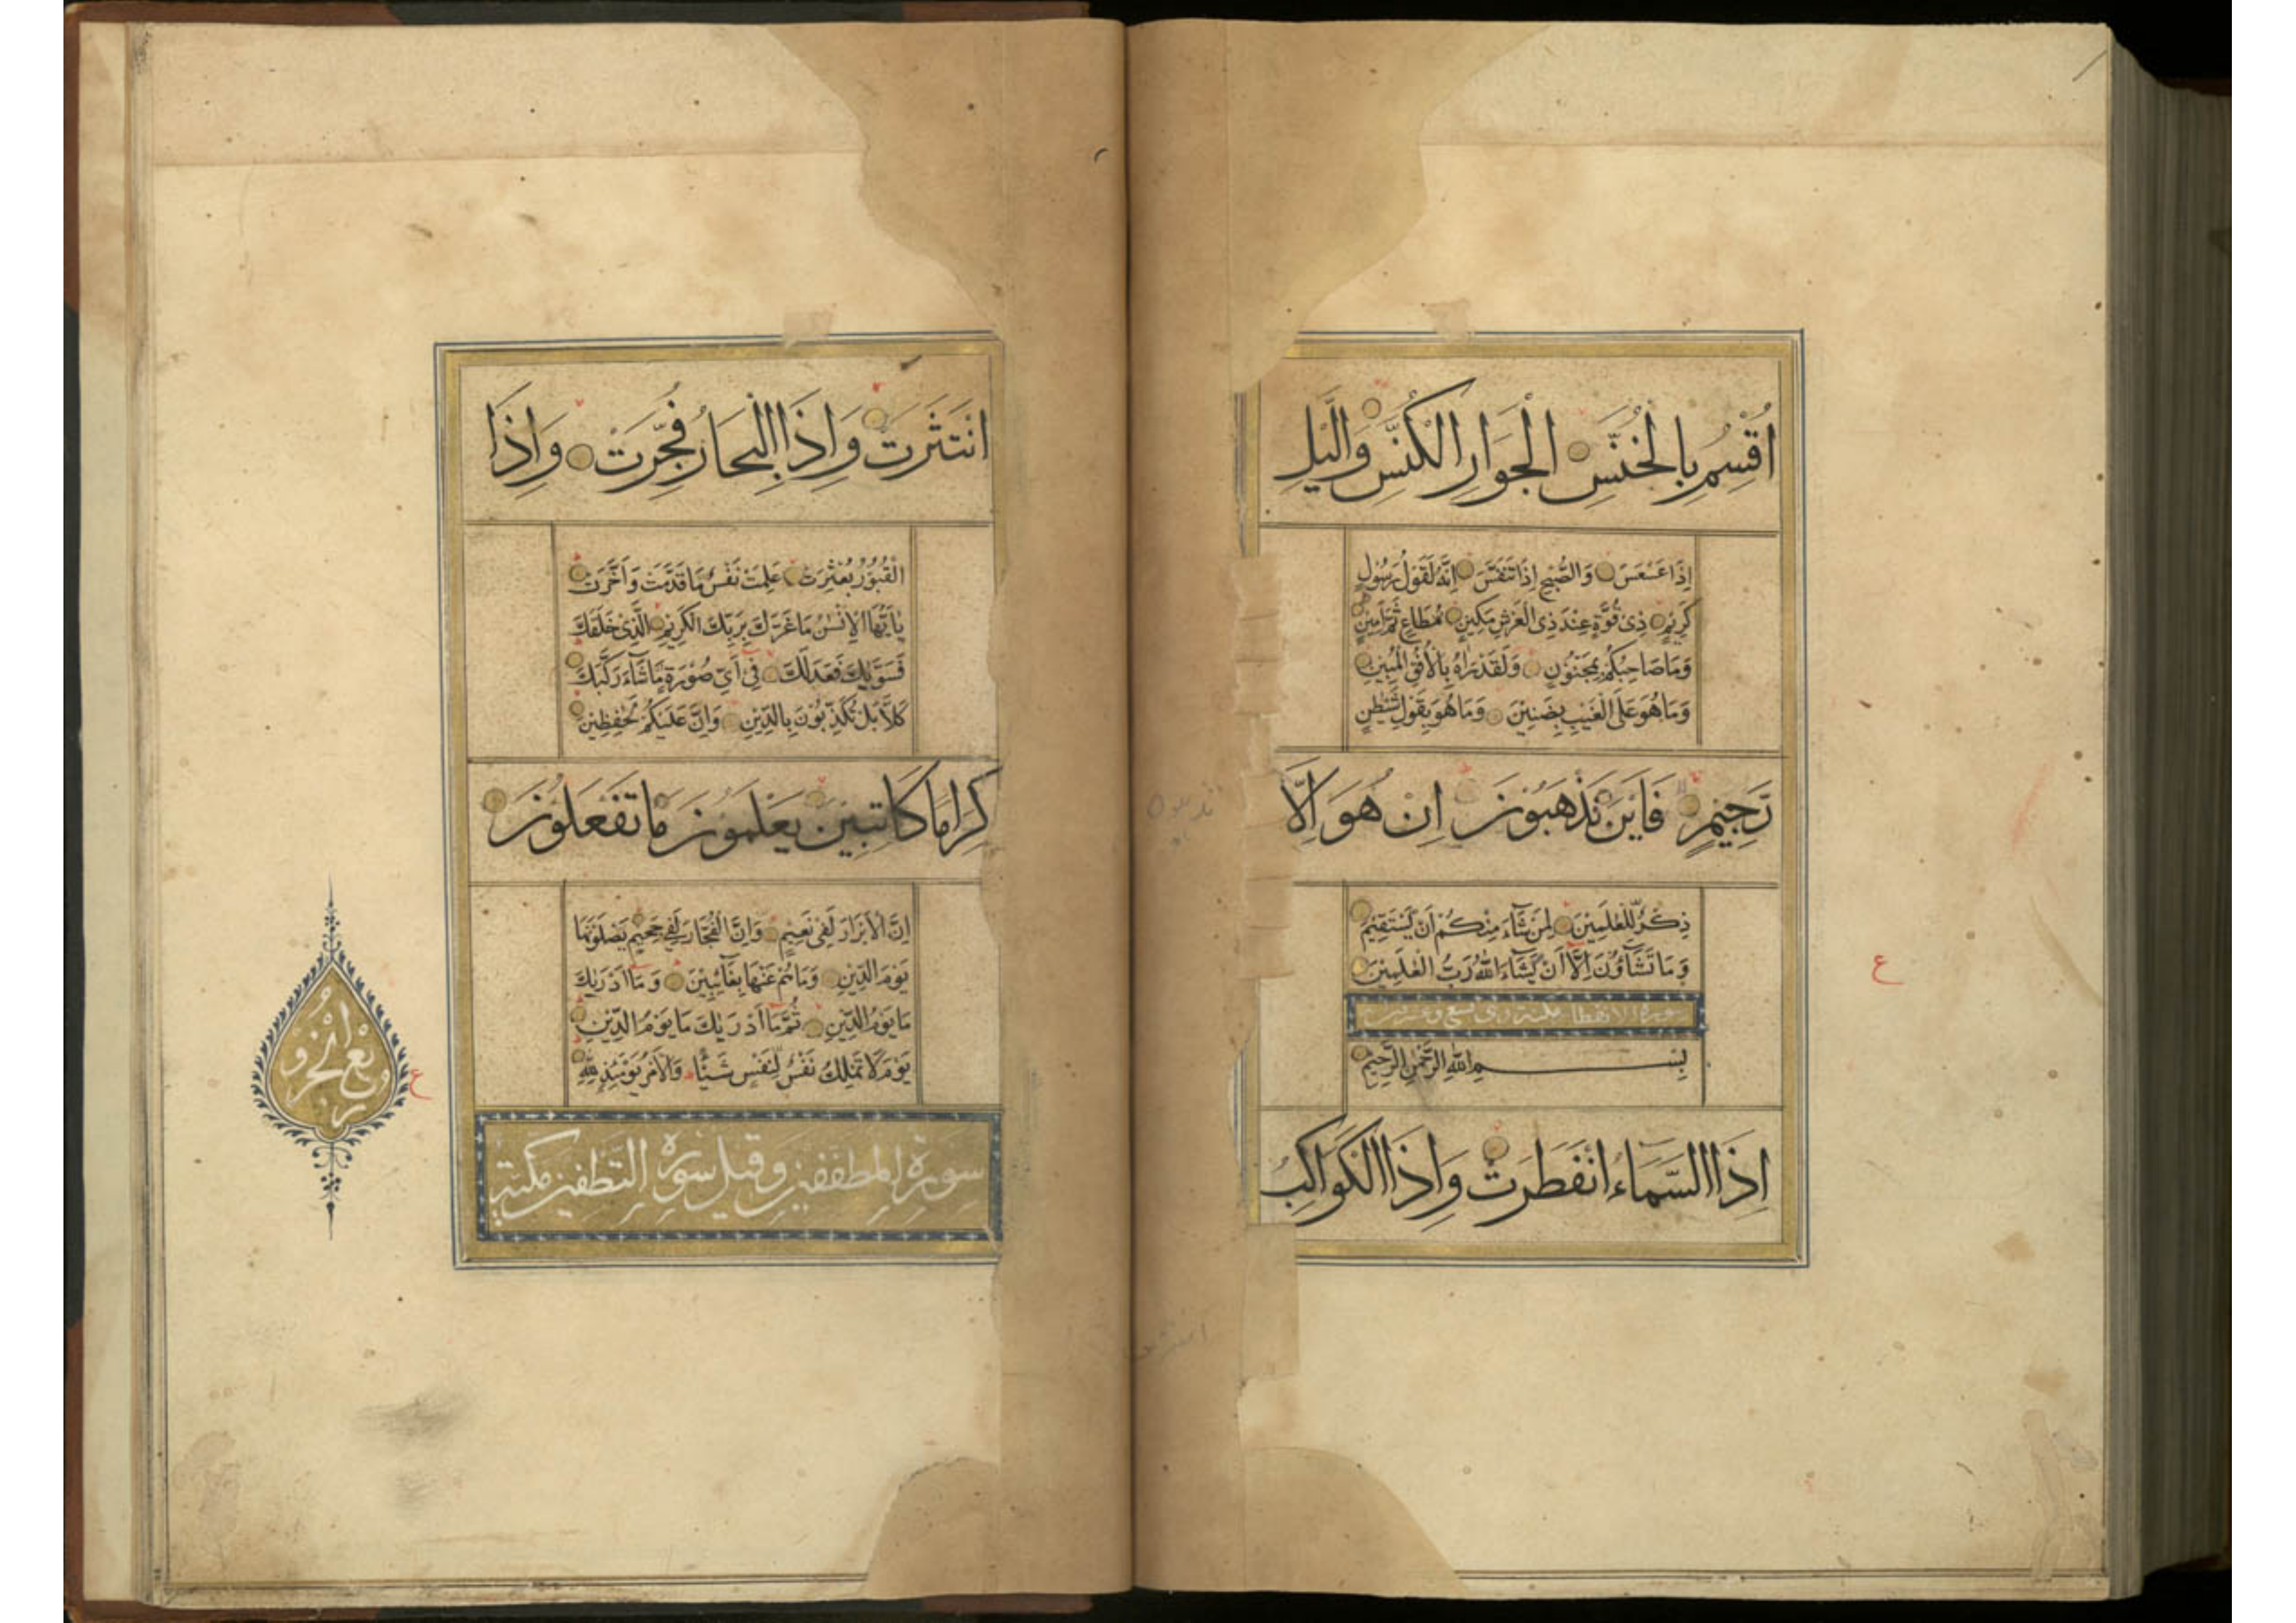 اُقْسِمُ بِالْخُنَّسِ الْجَوَارِ الْكُنَّسِ وَالَّيْلِ
اِذَا عَسْعَسَ وَالصُّبْحِ اِذَا تَنَفَّسَ اِنَّهُ لَقَوْلُ رَسُولٍ
كَرِيْمٍ ذِىْ قُوَّةٍ عِنْدَ ذِى الْعَرْشِ مَكِيْنٍ مُطَاعٍ ثَمَّ اَمِيْنٍ
وَمَا صَاحِبُكُمْ بِمَجْنُوْنٍ وَلَقَدْ رَاٰهُ بِالْاُفُقِ الْمُبِيْنِ
وَمَا هُوَ عَلَى الْغَيْبِ بِضَنِيْنٍ وَمَا هُوَ بِقَوْلِ شَيْطٰنٍ
رَّجِيْمٍ فَاَيْنَ تَذْهَبُوْنَ اِنْ هُوَ اِلَّا
ذِكْرٌ لِّلْعٰلَمِيْنَ لِمَنْ شَآءَ مِنْكُمْ اَنْ يَّسْتَقِيْمَ
وَمَا تَشَآؤُنَ اِلَّا اَنْ يَّشَآءَ اللّٰهُ رَبُّ الْعٰلَمِيْنَ
ع
سورة الانفطار مكية وهى تسع وعشر
بِسْمِ اللّٰهِ الرَّحْمٰنِ الرَّحِيْمِ
اِذَا السَّمَاءُ انْفَطَرَتْ وَاِذَا الْكَوَاكِبُ
انْتَثَرَتْ وَاِذَا الْبِحَارُ فُجِّرَتْ وَاِذَا
الْقُبُوْرُ بُعْثِرَتْ عَلِمَتْ نَفْسٌ مَا قَدَّمَتْ وَاَخَّرَتْ
يٰاَيُّهَا الْاِنْسٰنُ مَا غَرَّكَ بِرَبِّكَ الْكَرِيْمِ الَّذِىْ خَلَقَكَ
فَسَوّٰيكَ فَعَدَلَكَ فِىْ اَىِّ صُوْرَةٍ مَّا شَآءَ رَكَّبَكَ
كَلَّا بَلْ تُكَذِّبُوْنَ بِالدِّيْنِ وَاِنَّ عَلَيْكُمْ لَحٰفِظِيْنَ
كِرَامًا كَاتِبِيْنَ يَعْلَمُوْنَ مَا تَفْعَلُوْنَ
اِنَّ الْاَبْرَارَ لَفِىْ نَعِيْمٍ وَاِنَّ الْفُجَّارَ لَفِىْ جَحِيْمٍ يَصْلَوْنَهَا
يَوْمَ الدِّيْنِ وَمَا هُمْ عَنْهَا بِغَآئِبِيْنَ وَمَا اَدْرٰيكَ
مَا يَوْمُ الدِّيْنِ ثُمَّ مَا اَدْرٰيكَ مَا يَوْمُ الدِّيْنِ
يَوْمَ لَا تَمْلِكُ نَفْسٌ لِّنَفْسٍ شَيْئًا وَالْاَمْرُ يَوْمَئِذٍ لِّلّٰهِ
ع
سورة المطففين وقيل سورة التطفيف مكية
ربع الجزو